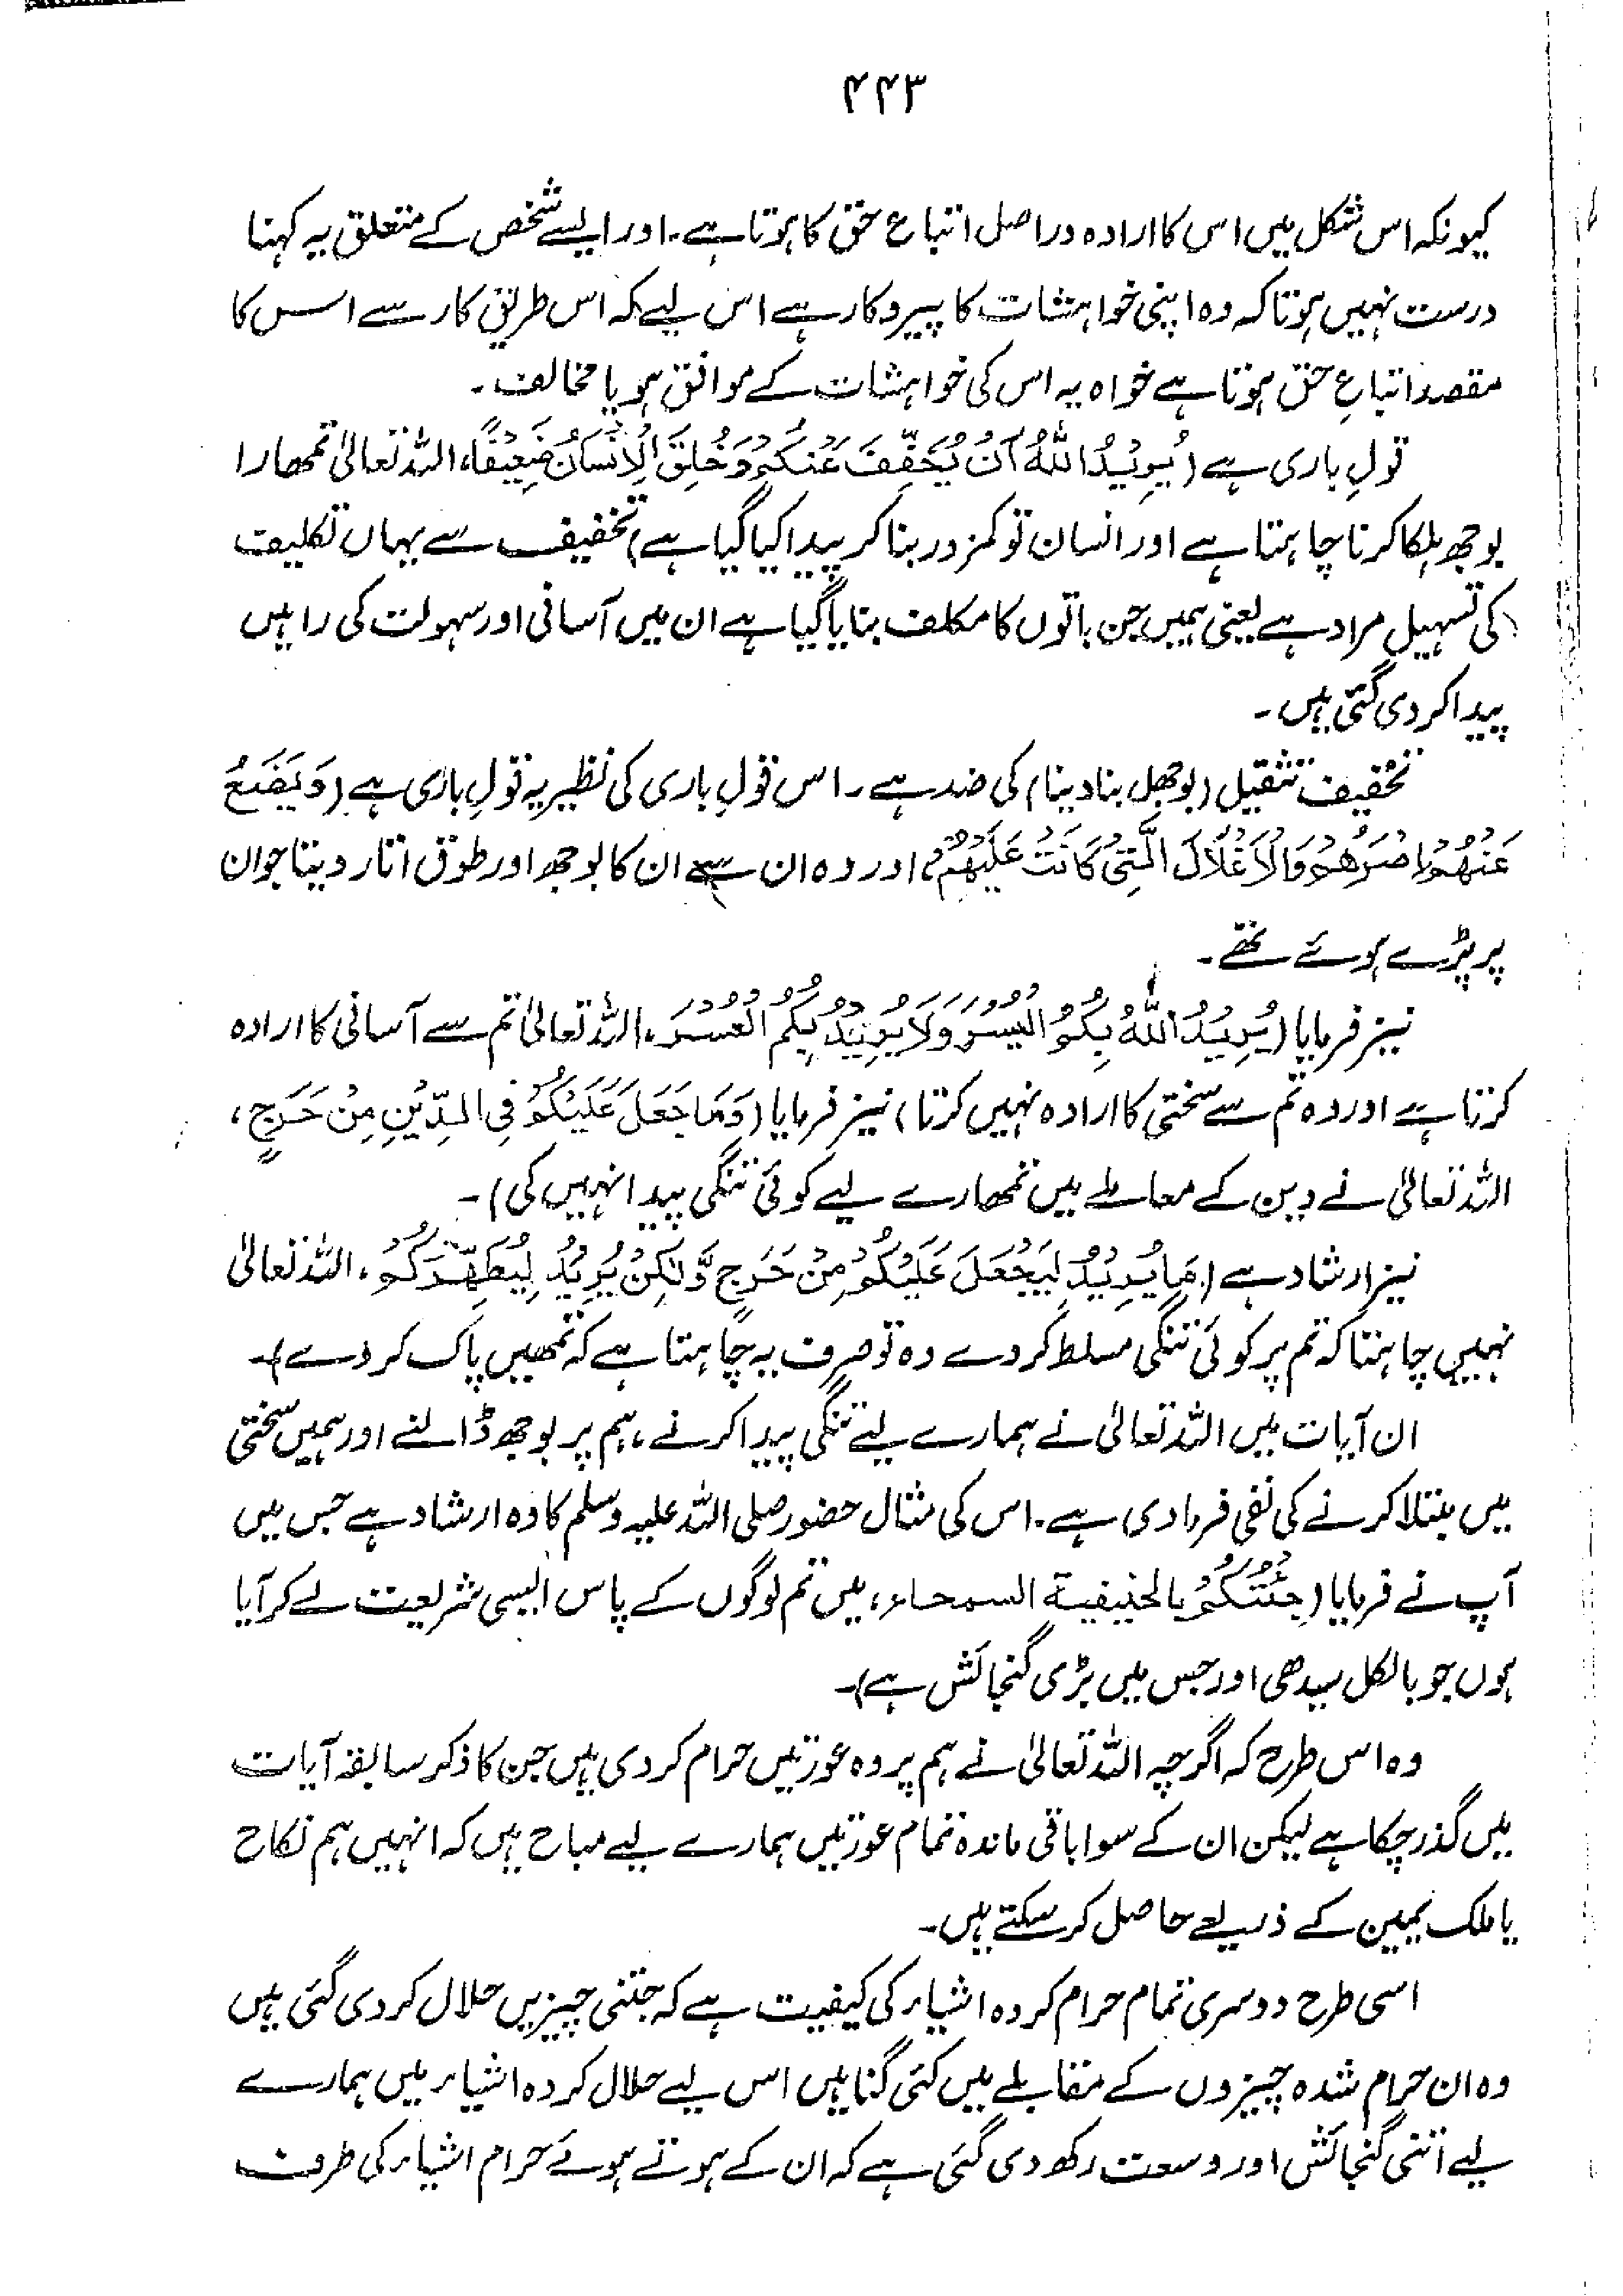 ۴۴۳
کیونکہ اس شکل میں اس کا ارادہ دراصل اتباع حق کا ہوتا ہے۔ اور ایسے شخص کے متعلق یہ کہنا
درست نہیں ہوتا کہ وہ اپنی خواہشات کا پیروکار ہے اس لیے کہ اس طریق کار سے اس کا
مقصد اتباعِ حق ہوتا ہے خواہ یہ اس کی خواہشات کے موافق ہو یا مخالف۔
قولِ باری ہے (یُرِیْدُ اللّٰہُ اَنْ یُّخَفِّفَ عَنْکُمْ وَخُلِقَ الْاِنْسَانُ ضَعِیْفًا، اللہ تعالیٰ تمھارا
بوجھ ہلکا کرنا چاہتا ہے اور انسان تو کمزور بنا کر پیدا کیا گیا ہے) تخفیف سے یہاں تکلیف
کی تسہیل مراد ہے یعنی ہمیں جن باتوں کا مکلف بنایا گیا ہے ان میں آسانی اور سہولت کی راہیں
پیدا کر دی گئی ہیں۔
تخفیف تثقیل (بوجھل بنا دینا) کی ضد ہے۔ اس قولِ باری کی نظیر یہ قولِ باری ہے (وَیَضَعُ
عَنْھُمْ اِصْرَھُمْ وَالْاَغْلَالَ الَّتِیْ کَانَتْ عَلَیْھِمْ، اور وہ ان سے ان کا بوجھ اور طوق اتار دیتا جو ان
پر پڑے ہوئے تھے۔
نیز فرمایا (یُرِیْدُ اللّٰہُ بِکُمُ الْیُسْرَ وَلَا یُرِیْدُ بِکُمُ الْعُسْرَ، اللہ تعالیٰ تم سے آسانی کا ارادہ
کرتا ہے اور وہ تم سے سختی کا ارادہ نہیں کرتا) نیز فرمایا (وَمَا جَعَلَ عَلَیْکُمْ فِی الدِّیْنِ مِنْ حَرَجٍ،
اللہ تعالیٰ نے دین کے معاملے میں تمھارے لیے کوئی تنگی پیدا نہیں کی)۔
نیز ارشاد ہے (مَا یُرِیْدُ لِیَجْعَلَ عَلَیْکُمْ مِنْ حَرَجٍ وَّلٰکِنْ یُّرِیْدُ لِیُطَھِّرَکُمْ، اللہ تعالیٰ
نہیں چاہتا کہ تم پر کوئی تنگی مسلط کر دے وہ تو صرف یہ چاہتا ہے کہ تمھیں پاک کر دے)۔
ان آیات میں اللہ تعالیٰ نے ہمارے لیے تنگی پیدا کرنے، ہم پر بوجھ ڈالنے اور ہمیں سختی
میں مبتلا کرنے کی نفی فرما دی ہے۔ اس کی مثال حضور صلی اللہ علیہ وسلم کا وہ ارشاد ہے جس میں
آپ نے فرمایا (جِئْتُکُمْ بالحنیفیة السمحاء، میں تم لوگوں کے پاس ایسی شریعت لے کر آیا
ہوں جو بالکل سیدھی اور جس میں بڑی گنجائش ہے)۔
وہ اس طرح کہ اگرچہ اللہ تعالیٰ نے ہم پر وہ عورتیں حرام کر دی ہیں جن کا ذکر سابقہ آیات
میں گذر چکا ہے لیکن ان کے سوا باقی ماندہ تمام عورتیں ہمارے لیے مباح ہیں کہ انہیں ہم نکاح
یا ملک یمین کے ذریعے حاصل کر سکتے ہیں۔
اسی طرح دوسری تمام حرام کردہ اشیاء کی کیفیت ہے کہ جتنی چیزیں حلال کر دی گئی ہیں
وہ ان حرام شدہ چیزوں کے مقابلے میں کئی گنا ہیں اس لیے حلال کردہ اشیاء میں ہمارے
لیے اتنی گنجائش اور وسعت رکھ دی گئی ہے کہ ان کے ہوتے ہوئے حرام اشیاء کی طرف